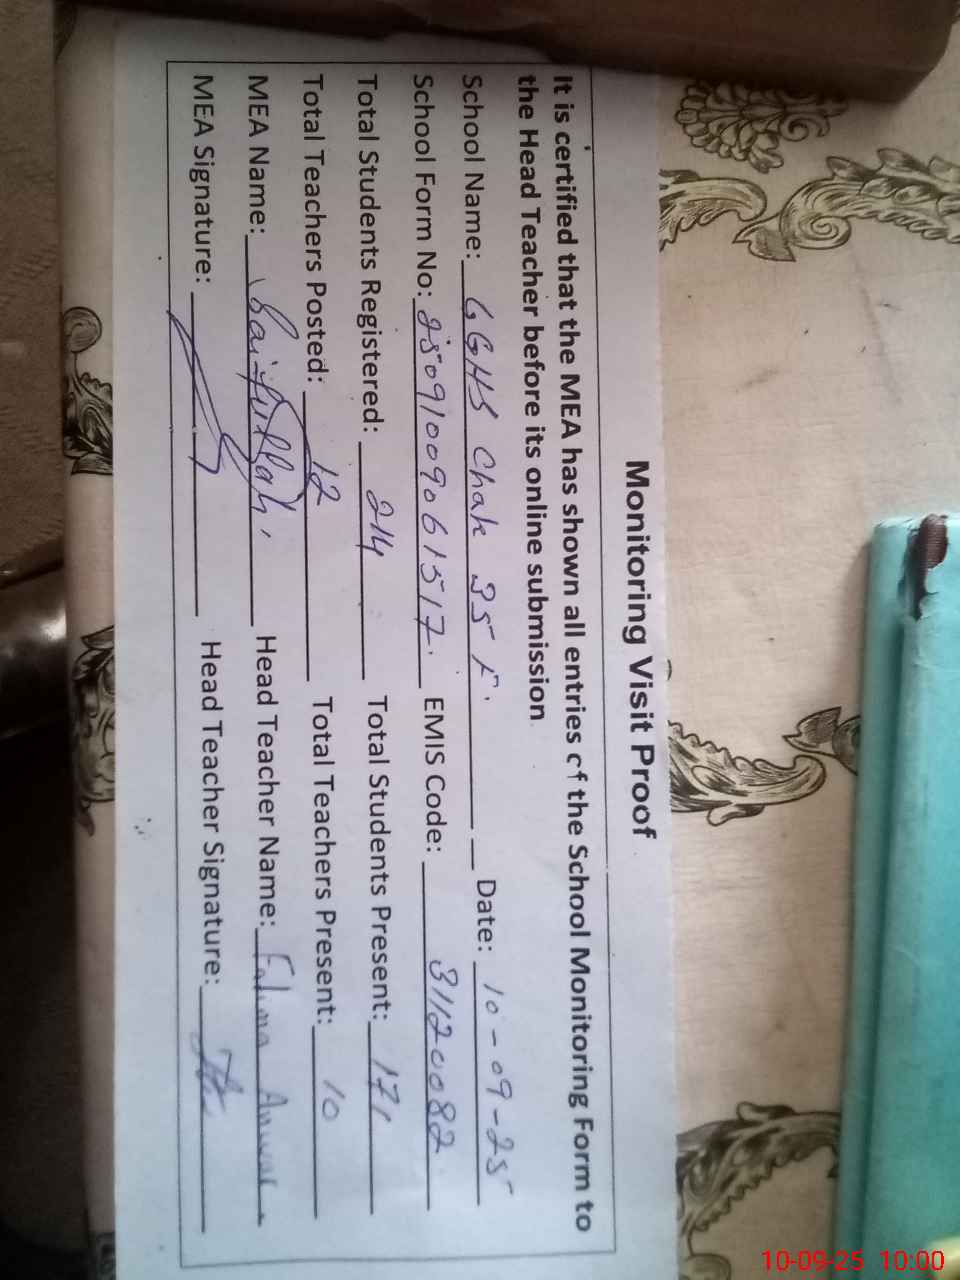 Monitoring Visit Proof
It is certified that the MEA has shown all entries of the School Monitoring Form to
the Head Teacher before its online submission.
School Name: GGHS Chak 35 F. Date: 10-09-25
School Form No: 25091009061517. EMIS Code: 31120082
Total Students Registered: 214 Total Students Present: 171
Total Teachers Posted: 12 Total Teachers Present: 10
MEA Name: Saifullah Head Teacher Name: Fatima Anwar
MEA Signature: Head Teacher Signature:
10-09-25 10:00